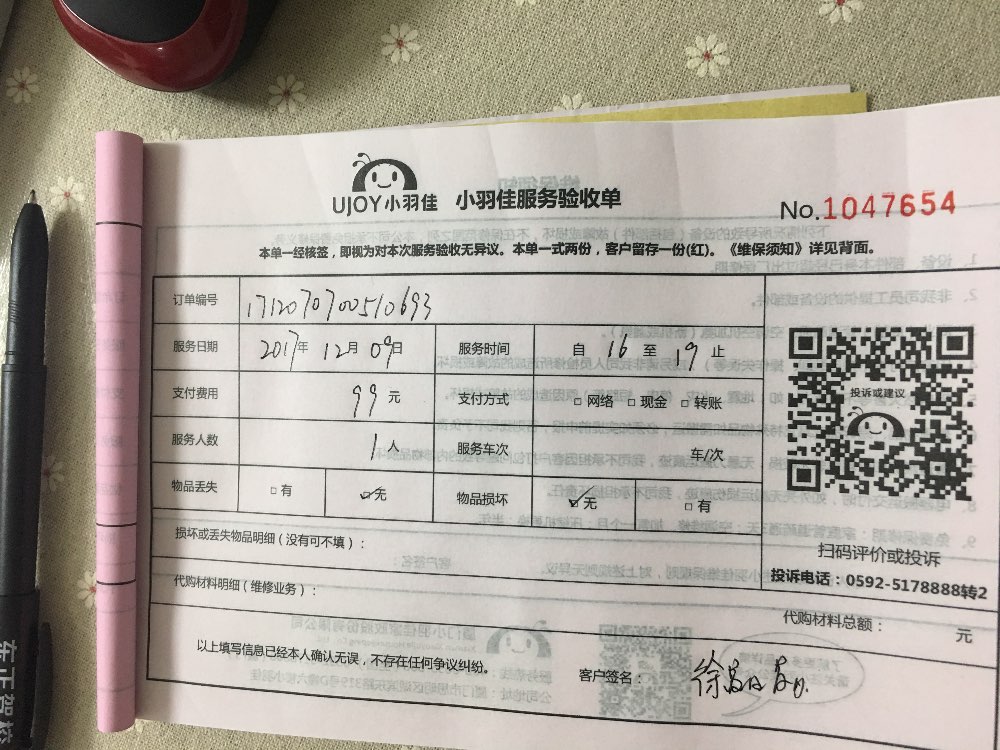 UJOY小羽佳 小羽佳服务验收单
No.1047654
本单一经核签，即视为对本次服务验收无异议。本单一式两份，客户留存一份(红)。《维保须知》详见背面。
订单编号 1712070700510693
服务日期 2017年 12月 09日 服务时间 自 16 至 19 止
支付费用 99 元 支付方式 □网络 □现金 □转账
服务人数 1人 服务车次 车/次
物品丢失 □有 ☑无 物品损坏 ☑无 □有
投诉或建议
扫码评价或投诉
投诉电话：0592-5178888转2
损坏或丢失物品明细（没有可不填）：
代购材料明细（维修业务）：
代购材料总额： 元
以上填写信息已经本人确认无误，不存在任何争议纠纷。
客户签名： 徐